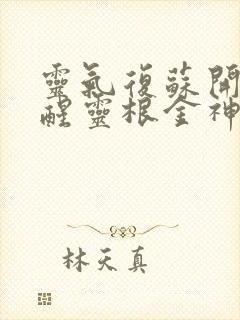 靈氣復蘇開
醒靈根全神
林天真